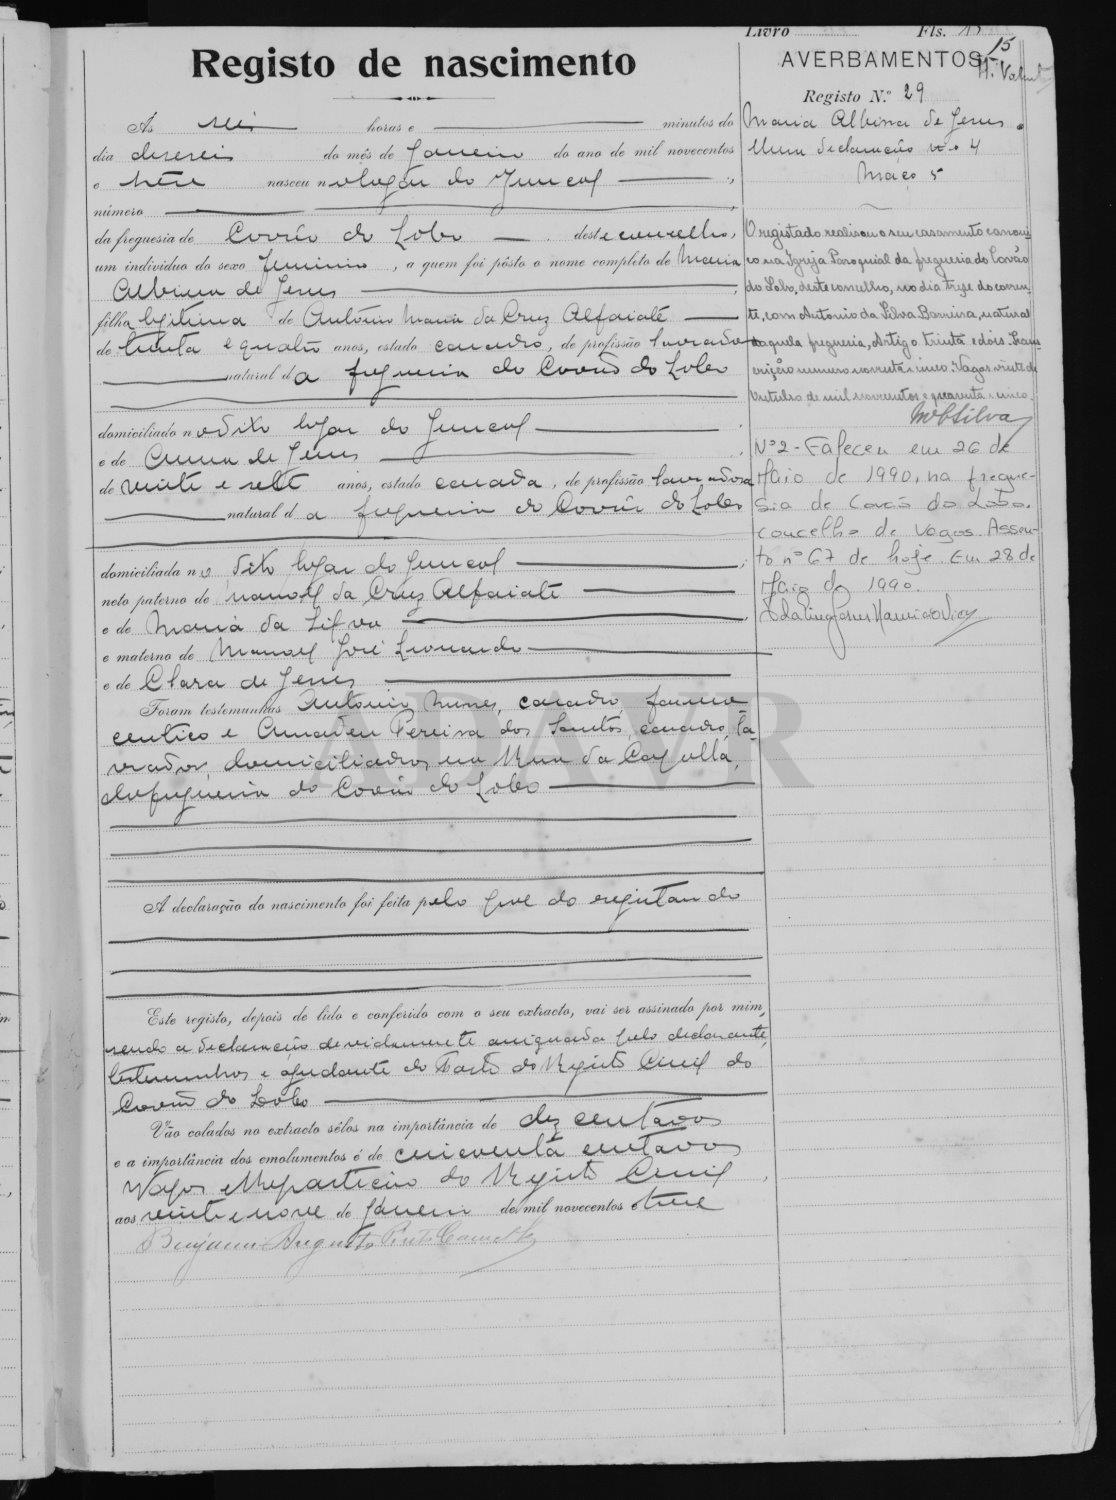 Livro Fls. 15
Registo de nascimento
AVERBAMENTOS
15
Registo N.º 29
Às seis horas e minutos do
dia deseseis do mês de Janeiro do ano de mil novecentos
e treze nasceu no logar do Juncal,
número
da freguesia de Covão do Lobo deste concelho,
um individuo do sexo feminino, a quem foi pôsto o nome completo de Maria
Albina de Jesus
filha legitima de António Maria da Cruz Alfaiate
de trinta e quatro anos, estado casado, de profissão lavrador
natural da freguesia do Covão do Lobo
domiciliado no dito logar do Juncal
e de Anna de Jesus
de vinte e sete anos, estado casada, de profissão lavradora
natural da freguesia do Covão do Lobo
domiciliada no dito logar do Juncal;
neto paterno de Manoel da Cruz Alfaiate
e de Maria da Silva
e materno de Manoel José Leonardo
e de Clara de Jesus
Foram testemunhas António Nunes, casado, farma-
ceutico e Amadeu Pereira dos Santos, casado, la-
vrador, domiciliados na Rua da
da freguesia do Covão do Lobo
A declaração do nascimento foi feita pelo pae do registando
Este registo, depois de lido e conferido com o seu extracto, vai ser assinado por mim,
sendo a declaração devidamente assignada pelo declarante,
testemunhas e ajudante do Posto do Registo Civil do
Covão do Lobo
Vão colados no extracto sêlos na importância de dez centavos
e a importância dos emolumentos é de cincoenta centavos
Vagos e Repartição do Registo Civil,
aos vinte e nove de Janeiro de mil novecentos e treze
Benjamin Augusto
Maria Albina de Jesus.
Uma declaração nº 4
Maço 5
O registado realisou o seu casamento canoni-
co na Igreja Paroquial da freguesia do Covão
do Lobo, deste concelho, no dia treze do corren-
te, com Antonio da Silva Barreira, natural
daquela freguesia, Artigo trinta e dois. Trans-
crição numero noventa e cinco. Vagos, vinte de
Outubro de mil novecentos e quarenta e cinco.
MBSilva
Nº2 - Faleceu em 26 de
Maio de 1990, na fregue-
sia de Covão do Lobo,
concelho de Vagos. Assen-
to nº 67 de hoje. Em 28 de
Maio de 1990
ADAVR